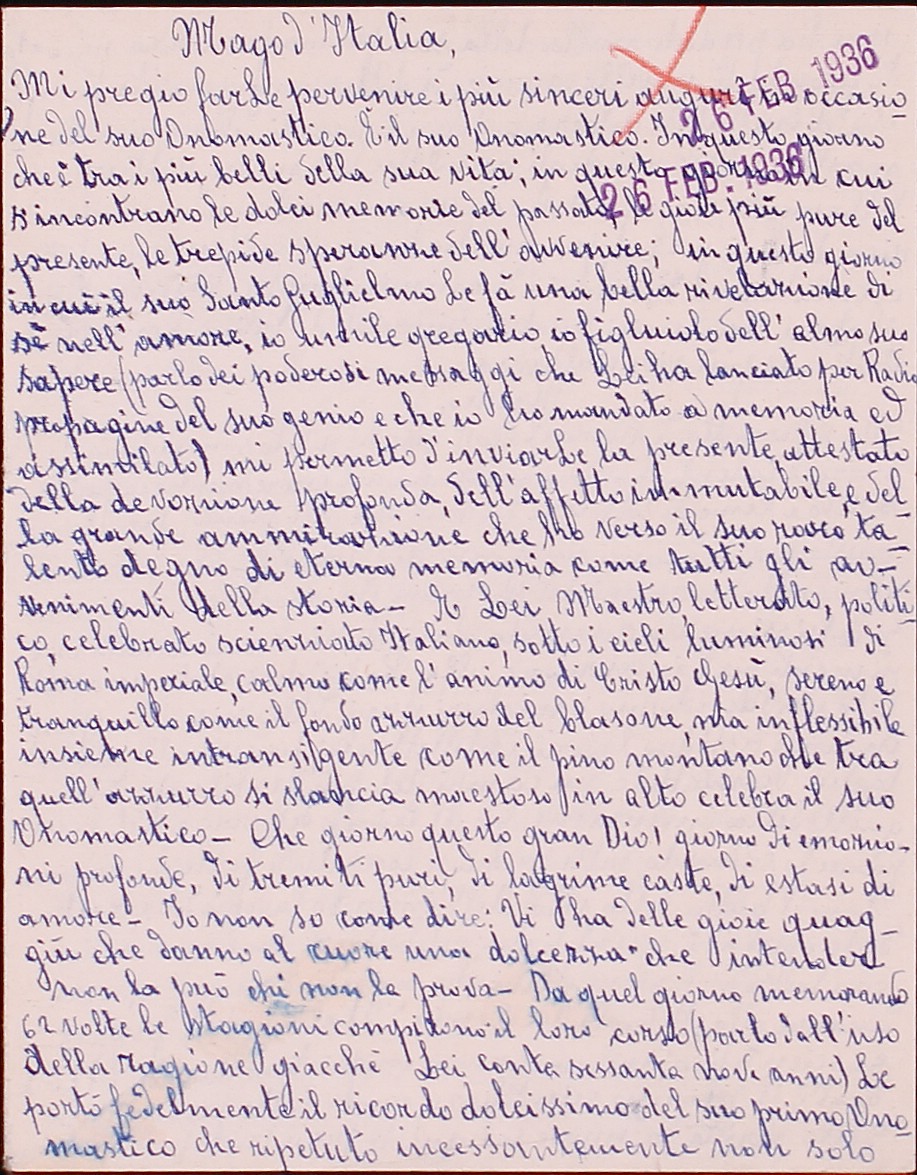 Mago d'Italia,
26 FEB 1936
Mi pregio farLe pervenire i più sinceri auguri in occasio-
ne del suo Onomastico. È il suo Onomastico. In questo giorno
26 FEB. 1936
che è tra i più belli della sua vita, in questo giorno in cui
s'incontrano le dolci memorie del passato, le gioie più pure del
presente, le trepide speranze dell'avvenire; in questo giorno
in cui il suo Santo Guglielmo Le fà una bella rivelazione di
sè nell'amore, io umile gregario, io figliuolo dell'almo suo
sapere (parlo dei poderosi messaggi che Lei ha lanciato per Radio
propagine del suo genio e che io ho mandato a memoria ed
assimilato) mi permetto d'inviarLe la presente, attestato
della devozione profonda, dell'affetto immutabile, e del
la grande ammirazione che ho verso il suo raro ta-
lento degno di eterna memoria come tutti gli av-
venimenti della storia - E Lei Maestro, letterato, politi-
co, celebrato scienziato Italiano, sotto i cieli luminosi di
Roma imperiale, calmo come l'animo di Cristo Gesù, sereno e
tranquillo come il fondo azzurro del blasone, ma inflessibile
insieme intransigente come il pino montano che tra
quell'azzurro si slancia maestoso in alto celebra il suo
Onomastico - Che giorno questo gran Dio! giorno di emozio-
ni profonde, di tremiti puri, di lagrime caste, di estasi di
amore - Io non so come dire: Vi ha delle gioie quag-
giù che danno al cuore una dolcezza "che intender
non la può chi non la prova - Da quel giorno memorando
62 volte le stagioni compirono il loro corso (parlo dall'uso
della ragione giacchè Lei conta sessanta nove anni) Le
portò fedelmente il ricordo dolcissimo del suo primo Ono-
mastico che ripetuto incessantemente non solo